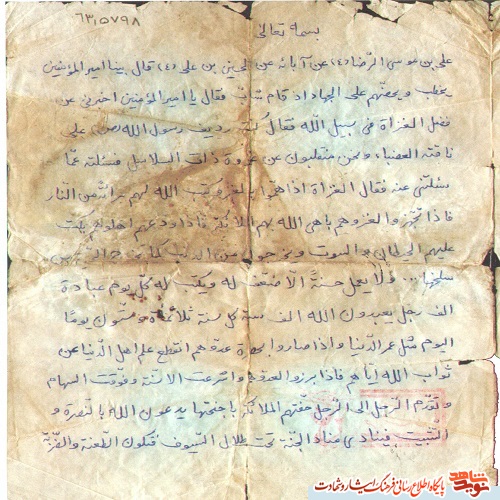 ٦٣١٥٧٩٨
بسمه تعالی
علی بن موسی الرضا (ع) عن آبائه عن علی بن علی (ع) قال بینا امیر المؤمنین
یخطب و یحضهم علی الجهاد اذ قام شاب فقال یا امیر المؤمنین اخبرنی عن
فضل الغزاة فی سبیل الله فقال کنت ردیف رسول الله (ص) علی
ناقته العضباء و نحن منقلبون عن غزوة ذات السلاسل فسئلته عما
سئلتنی عنه فقال الغزاة اذا همّوا بالغزو کتب الله لهم برائة من النار
فاذا تجهّزوا لغزوهم باهی الله بهم الملائکة فاذا ودعهم اهلوهم بکت
علیهم الحیطان و البیوت و یخرجون من الذنوب کما تخرج الحیة من
سلخها ... و لا یعمل حسنةً الّا ضعف له و یکتب له کلّ یوم عبادة
الف رجل یعبدون الله الف سنة کل سنة ثلاثمائة و ستّون یومًا
الیوم مثل عمر الدّنیا و اذا صاروا بحضرة عدوّهم انقطع علم اهل الدّنیا عن
ثواب الله ایّاهم فاذا برزوا لعدوّهم و اشرعت الاسنّة و فوّقت السهام
و تقدّم الرّجل الی الرّجل حفّتهم الملائکة باجنحتها یدعون الله بالنّصرة و
التّثبیت فینادی مناد الجنة تحت ظلال السّیوف فتکون الطّعنة و الضّربة
نوید شاهد
پایگاه اطلاع رسانی فرهنگ ایثار و شهادت